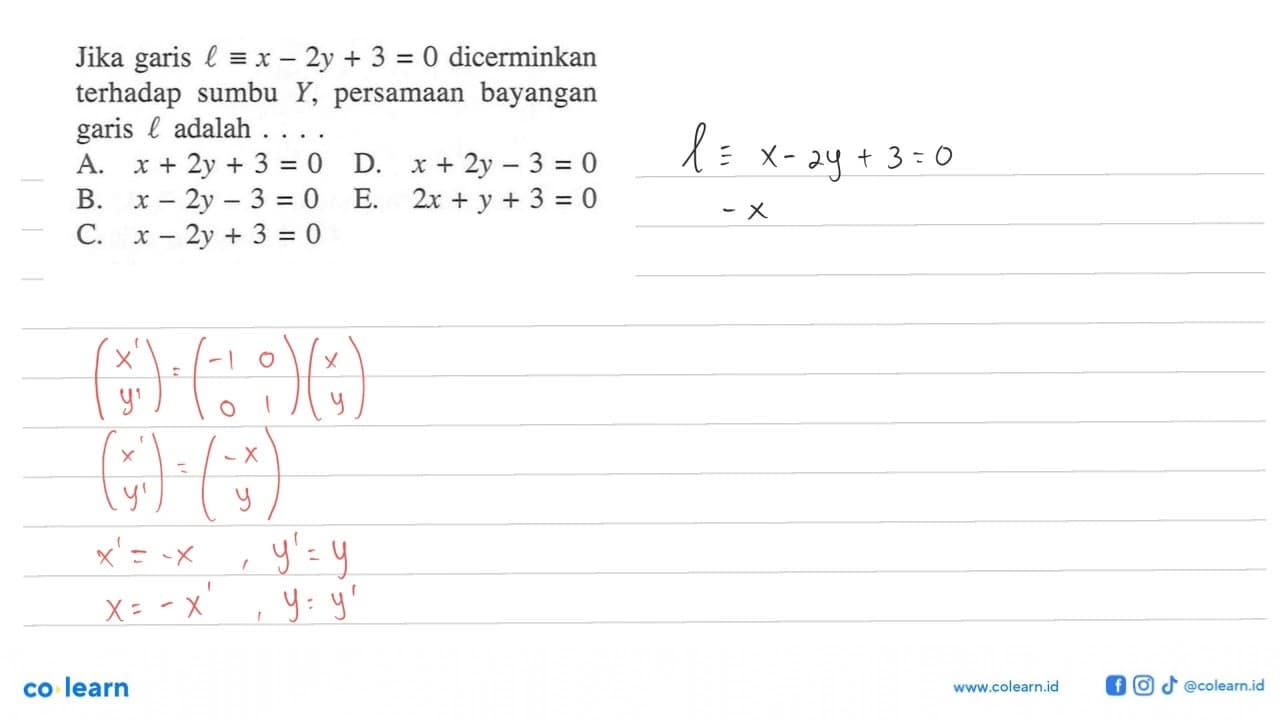 Jika garis ℓ ≡ x – 2y + 3 = 0 dicerminkan
terhadap sumbu Y, persamaan bayangan
garis ℓ adalah . . . .
A. x + 2y + 3 = 0 D. x + 2y – 3 = 0
B. x – 2y – 3 = 0 E. 2x + y + 3 = 0
C. x – 2y + 3 = 0
ℓ ≡ x - 2y + 3 = 0
- x
(x' y') = (-1 0 0 1) (x y)
(x' y') = (-x y)
x' = -x , y' = y
x = -x' , y = y'
co learn
www.colearn.id
@colearn.id